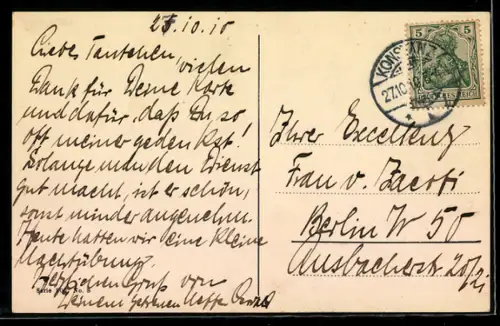 25.10.10
Liebes Tantchen, vielen
Dank für Deine Karte
und dafür, daß Du so
oft meiner gedenkst!
Solange man den Dienst
gut macht, ist er schön,
sonst minder angenehm.
Heute hatten wir eine kleine
Nachtübung.
Herzlichen Gruß von
Deinem getreuen Neffen
5 5
KONSTANZ
27.10.10
Ihrer Excellenz
Frau v. Jacobi
Berlin W 50
Ansbacherstr 20